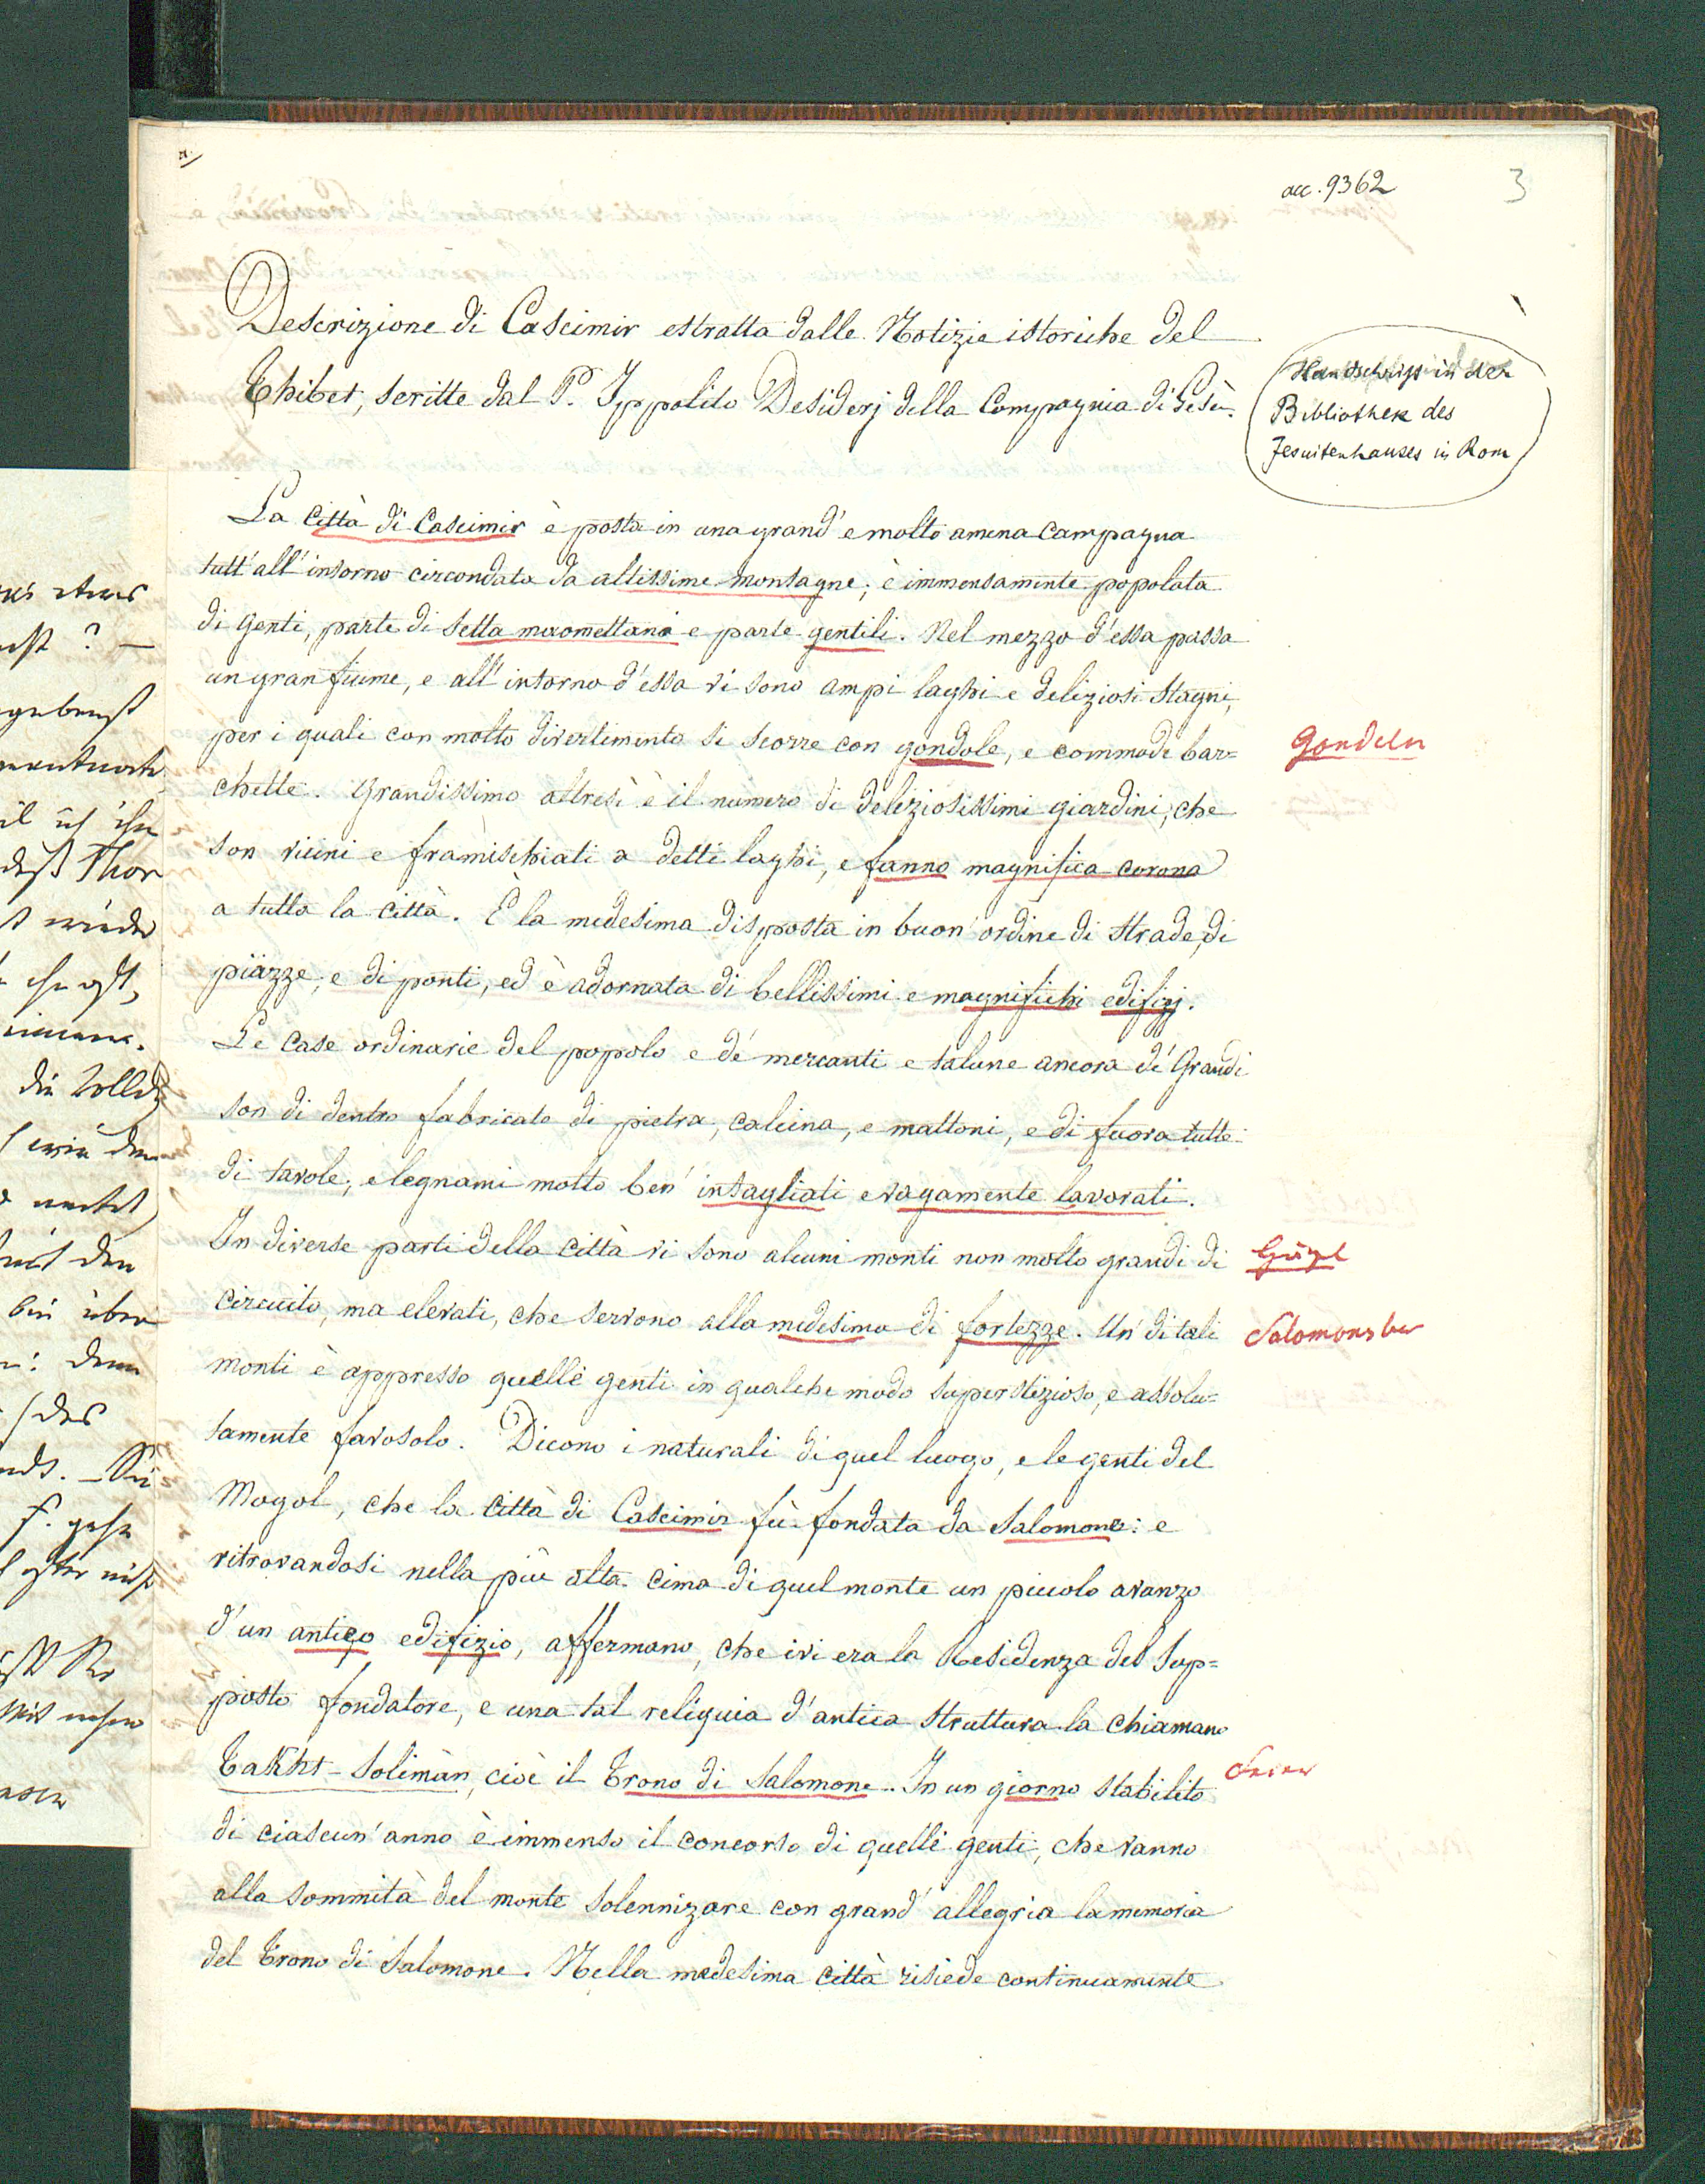 acc. 9362
3
Descrizione di Cascimir estratta dalle Notizie istoriche del
Thibet, scritte dal P. Ippolito Desiderj della Compagnia di Gesù.
Handschrift in der
Bibliothek des
Jesuitenhauses in Rom
La Città di Cascimir è posta in una grand' e molto amena campagna
tutt' all' intorno circondata da altissime montagne; è immensamente popolata
di genti, parte di setta maomettana e parte gentili. Nel mezzo d'essa passa
un gran fiume, e all' intorno d'essa vi sono ampi laghi e deliziosi stagni,
per i quali con molto divertimento si scorre con gondole, e commode bar=
Gondeln
chette. Grandissimo altresì è il numero di deliziosissimi giardini, che
son vicini e framischiati a detti laghi, e fanno magnifica corona
a tutta la città. È la medesima disposta in buon' ordine di strade, di
piazze, e di ponti, ed è adornata di bellissimi e magnifichi edifizj.
Le case ordinarie del popolo e de' mercanti e talune ancora de' Grandi
son di dentro fabricate di pietra, calcina, e mattoni, e di fuora tutte
di tavole, e legnami molto ben' intagliati e vagamente lavorati.
In diverse parti della città vi sono alcuni monti non molto grandi di
Hügel
circuito, ma elevati, che servono alla medesima di fortezze. Un' di tali
Salomonsber
monti è appresso quelle genti in qualche modo superstizioso, e assolu=
tamente favosolo. Dicono i naturali di quel luogo, e le genti del
Mogol, che la Città di Cascimir fù fondata da Salomone: e
ritrovandosi nella più alta cima di quel monte un piccolo avanzo
d'un antico edifizio, affermano, che ivi era la Residenza del Sup=
posto fondatore, e una tal reliquia d'antica struttura la chiamano
Takht-Solimàn, cioè il Trono di Salomone. In un giorno stabilito
di ciascun' anno è immenso il concorso di quelle genti, che vanno
alla sommità del monte solennizare con grand' allegria la memoria
del Trono di Salomone. Nella medesima città risiede continuamente